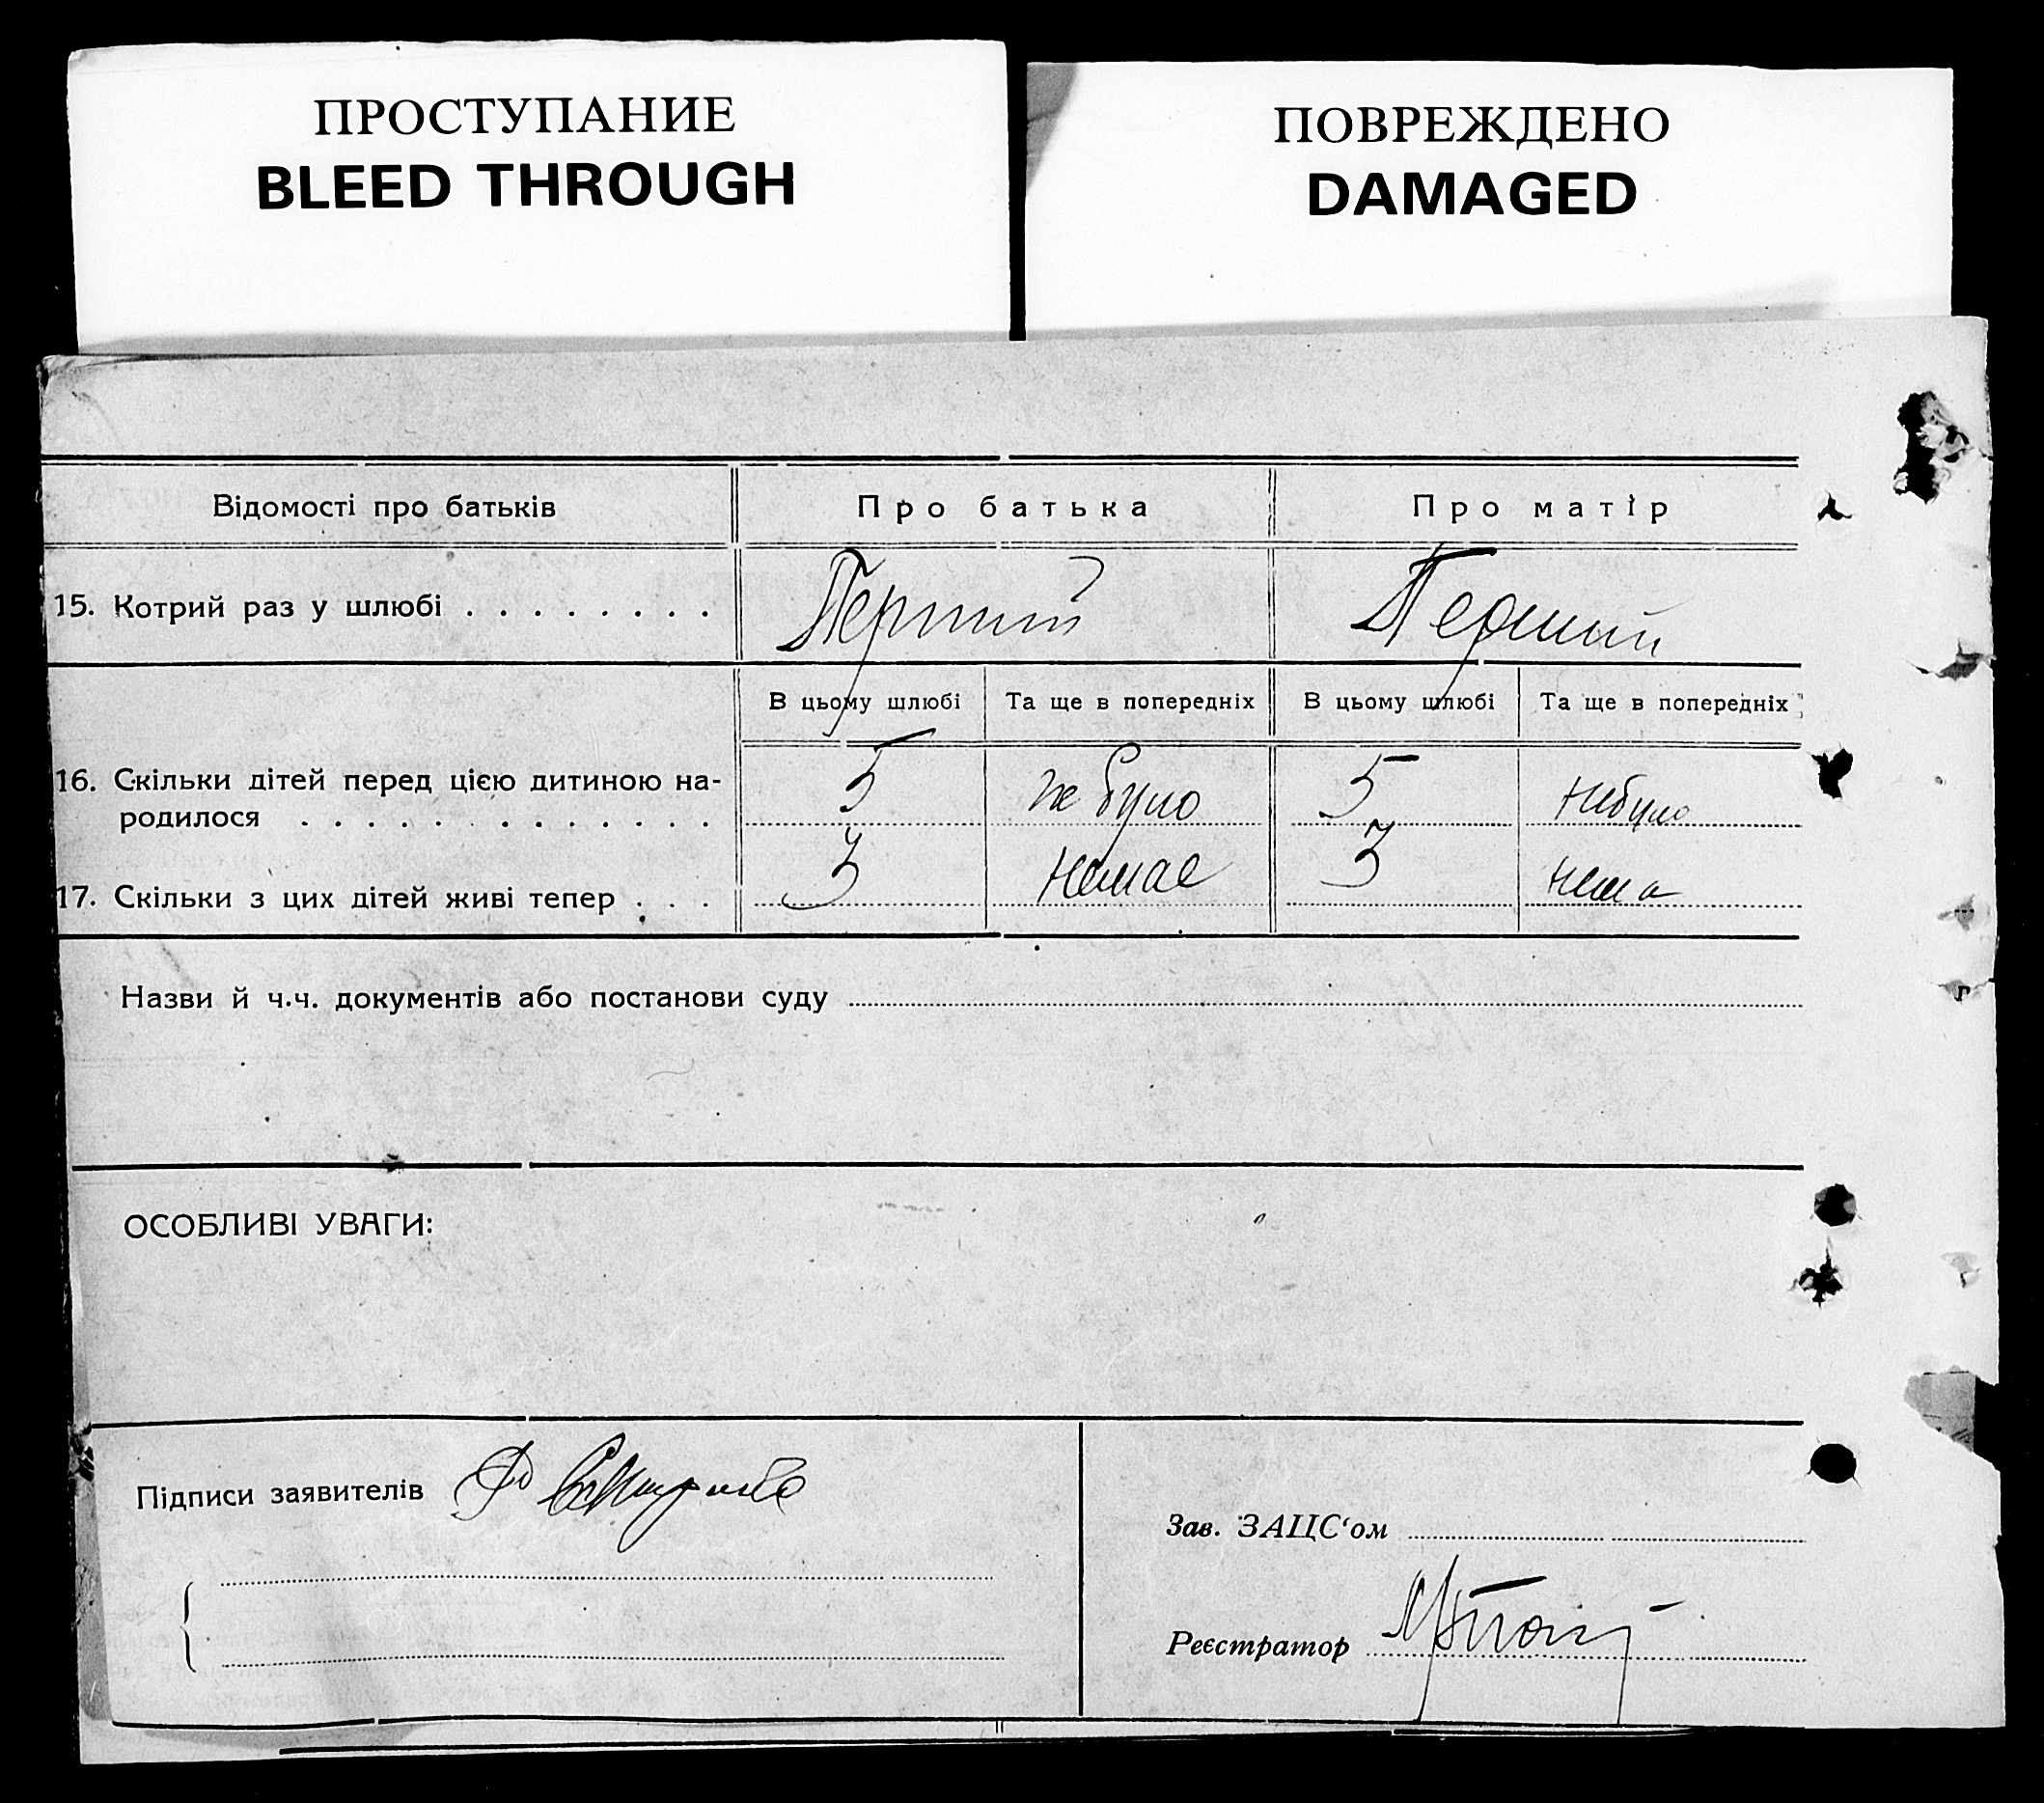 ПРОСТУПАНИЕ
BLEED THROUGH
ПОВРЕЖДЕНО
DAMAGED
Відомості про батьків
Про батька
Про матір
15. Котрий раз у шлюбі . . . . . . . .
Перший
Перший
В цьому шлюбі
Та ще в попередніх
В цьому шлюбі
Та ще в попередніх
16. Скільки дітей перед цією дитиною на-
родилося . . . . . . . . . . . . .
5
не було
5
небуло
17. Скільки з цих дітей живі тепер . . .
3
немає
3
нема
Назви й ч.ч. документів або постанови суду
ОСОБЛИВІ УВАГИ:
Підписи заявителів
Зав. ЗАЦС‘ом
Реєстратор